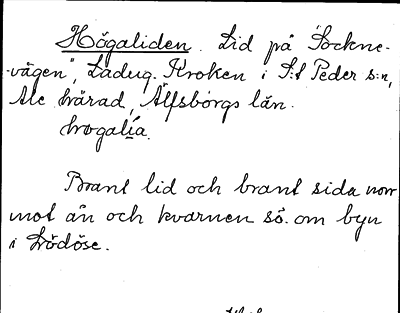 Högaliden. Lid på "Sockne-
-vägen", Ladug. Kroken i S:t Peder s:n,
Ale härad, Älfsborgs län.
hωgalía.
Brant lid och brant sida norr
mot ån och kvarnen sö. om byn
i Lödöse.